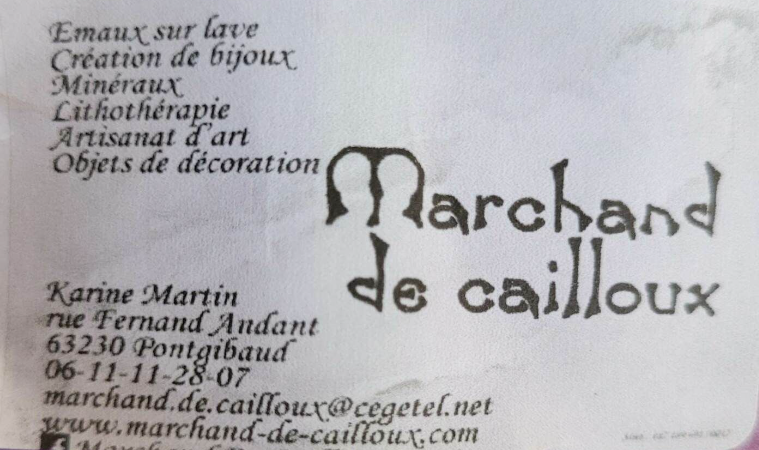 Emaux sur lave
Création de bijoux
Minéraux
Lithothérapie
Artisanat d'art
Objets de décoration
Marchand
de cailloux
Karine Martin
rue Fernand Andant
63230 Pontgibaud
06-11-11-28-07
marchand.de.cailloux@cegetel.net
www.marchand-de-cailloux.com